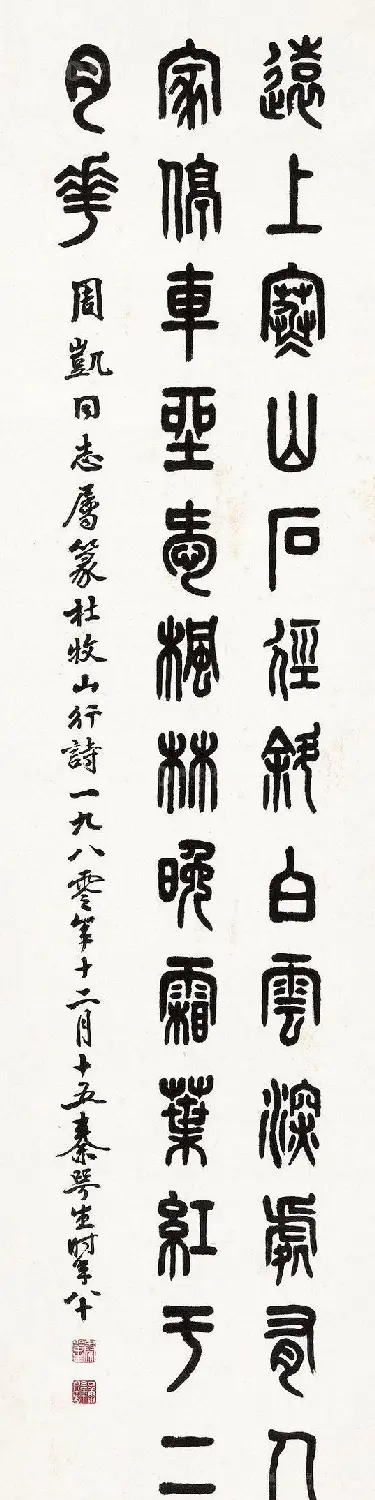 遠上寒山石徑斜白雲深處有人
家停車坐愛楓林晚霜葉紅于二
月華
周凱同志屬篆杜牧山行詩一九八零年十二月十五秦咢生時年八十